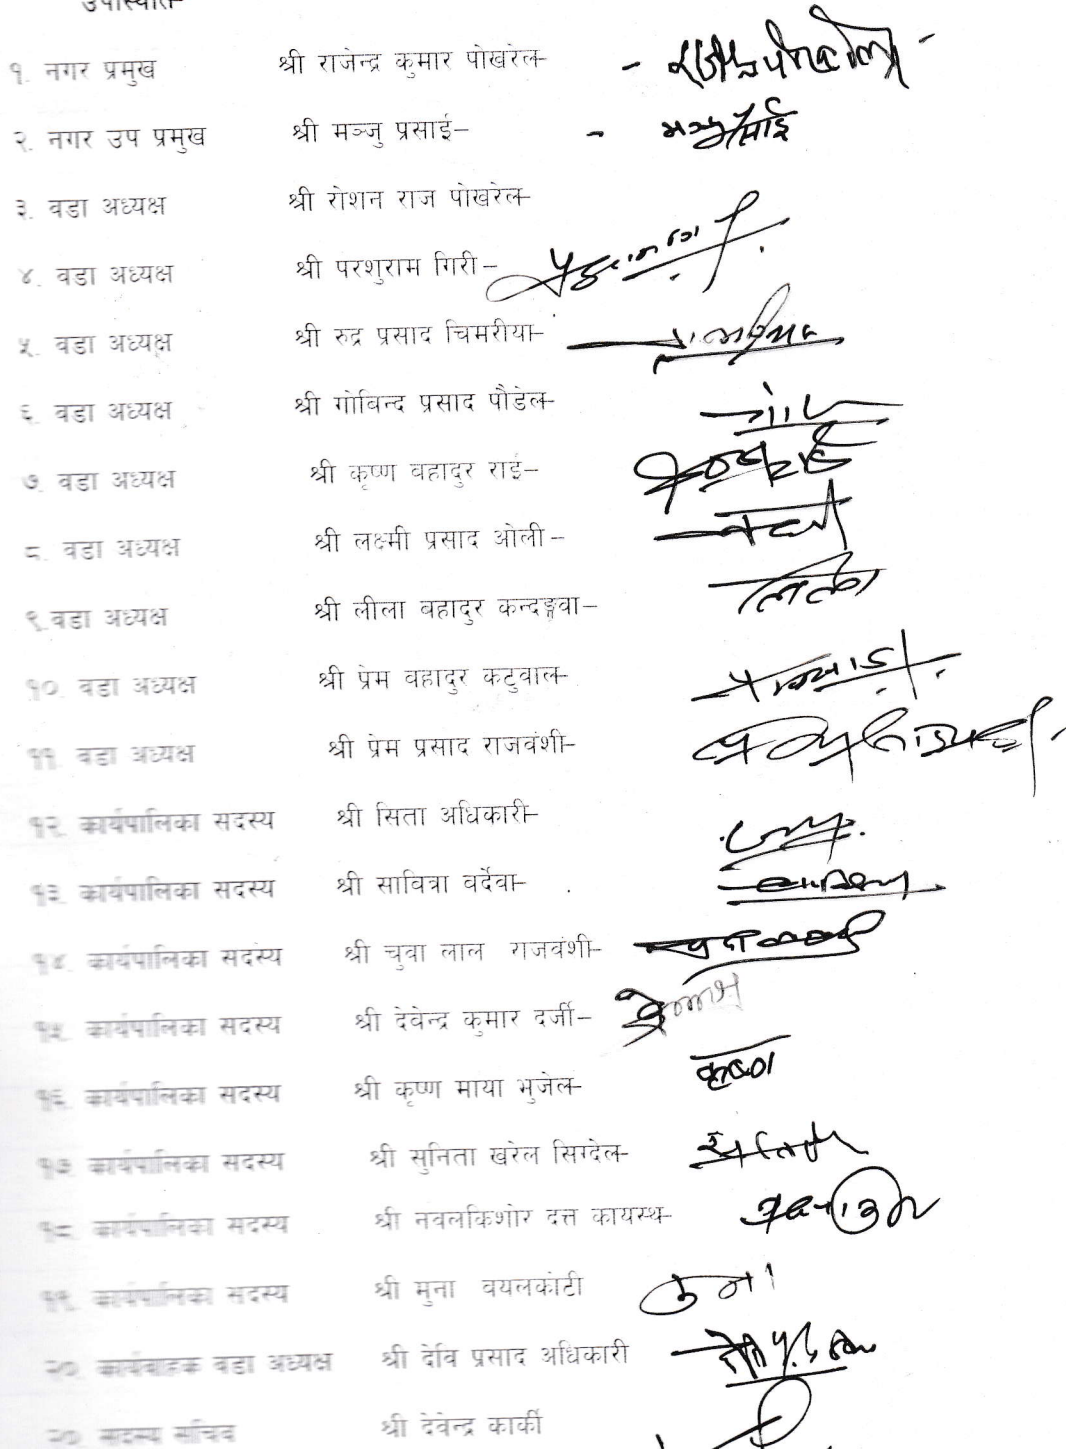 उपस्थिति
१. नगर प्रमुख श्री राजेन्द्र कुमार पोखरेल-
२. नगर उप प्रमुख श्री मञ्जु प्रसाई- मञ्जु प्रसाई
३. वडा अध्यक्ष श्री रोशन राज पोखरेल-
४. वडा अध्यक्ष श्री परशुराम गिरी-
५. वडा अध्यक्ष श्री रुद्र प्रसाद चिमरीया-
६. वडा अध्यक्ष श्री गोविन्द प्रसाद पौडेल-
७. वडा अध्यक्ष श्री कृष्ण वहादुर राई-
८. वडा अध्यक्ष श्री लक्ष्मी प्रसाद ओली-
९.वडा अध्यक्ष श्री लीला वहादुर कन्दङ्गवा-
१०. वडा अध्यक्ष श्री प्रेम वहादुर कटुवाल-
११. वडा अध्यक्ष श्री प्रेम प्रसाद राजवंशी-
१२. कार्यपालिका सदस्य श्री सिता अधिकारी-
१३. कार्यपालिका सदस्य श्री सावित्रा वर्देवा-
१४. कार्यपालिका सदस्य श्री चुवा लाल राजवंशी-
१५. कार्यपालिका सदस्य श्री देवेन्द्र कुमार दर्जी-
१६. कार्यपालिका सदस्य श्री कृष्ण माया भुजेल- कृष्ण
१७. कार्यपालिका सदस्य श्री सुनिता खरेल सिग्देल-
१८. कार्यपालिका सदस्य श्री नवलकिशोर दत्त कायस्थ-
१९. कार्यपालिका सदस्य श्री मुना वयलकोटी
२०. कार्यबाहक वडा अध्यक्ष श्री देवि प्रसाद अधिकारी
२०. सदस्य सचिव श्री देवेन्द्र कार्की